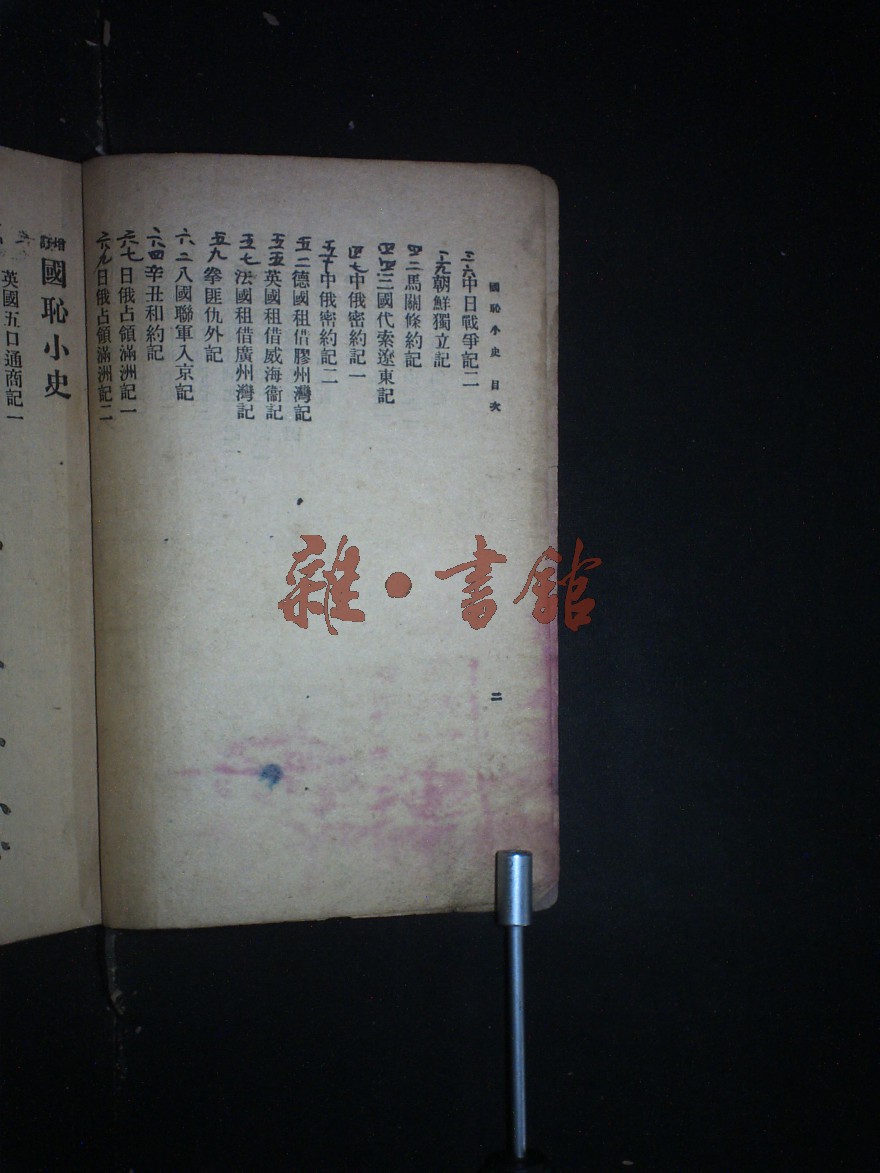 國恥小史 目次
二
三六中日戰爭記二
三九朝鮮獨立記
四二馬關條約記
四四三國代索遼東記
四七中俄密約記一
五十中俄密約記二
五二德國租借膠州灣記
五五英國租借威海衞記
五七法國租借廣州灣記
五九拳匪仇外記
六二八國聯軍入京記
六四辛丑和約記
六七日俄占領滿洲記一
六九日俄占領滿洲記二
國恥小史
英國五口通商記一
雜·書館